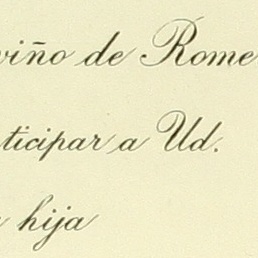 viño de Rome
ticipar a Ud.
hija